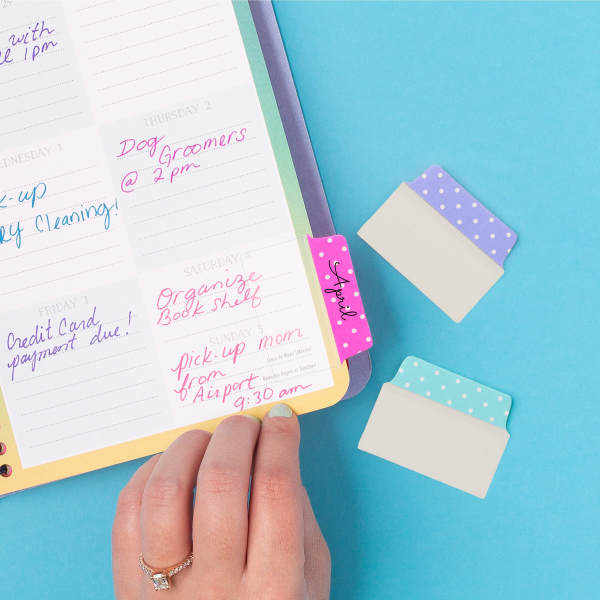 with
1pm
WEDNESDAY 1
Cleaning!
THURSDAY 2
Dog
Groomers
@ 2pm
FRIDAY 3
Credit Card
payment due!
SATURDAY 4
Organize
Book Shelf
SUNDAY 5
pick-up mom
from
Airport
9:30 am
April